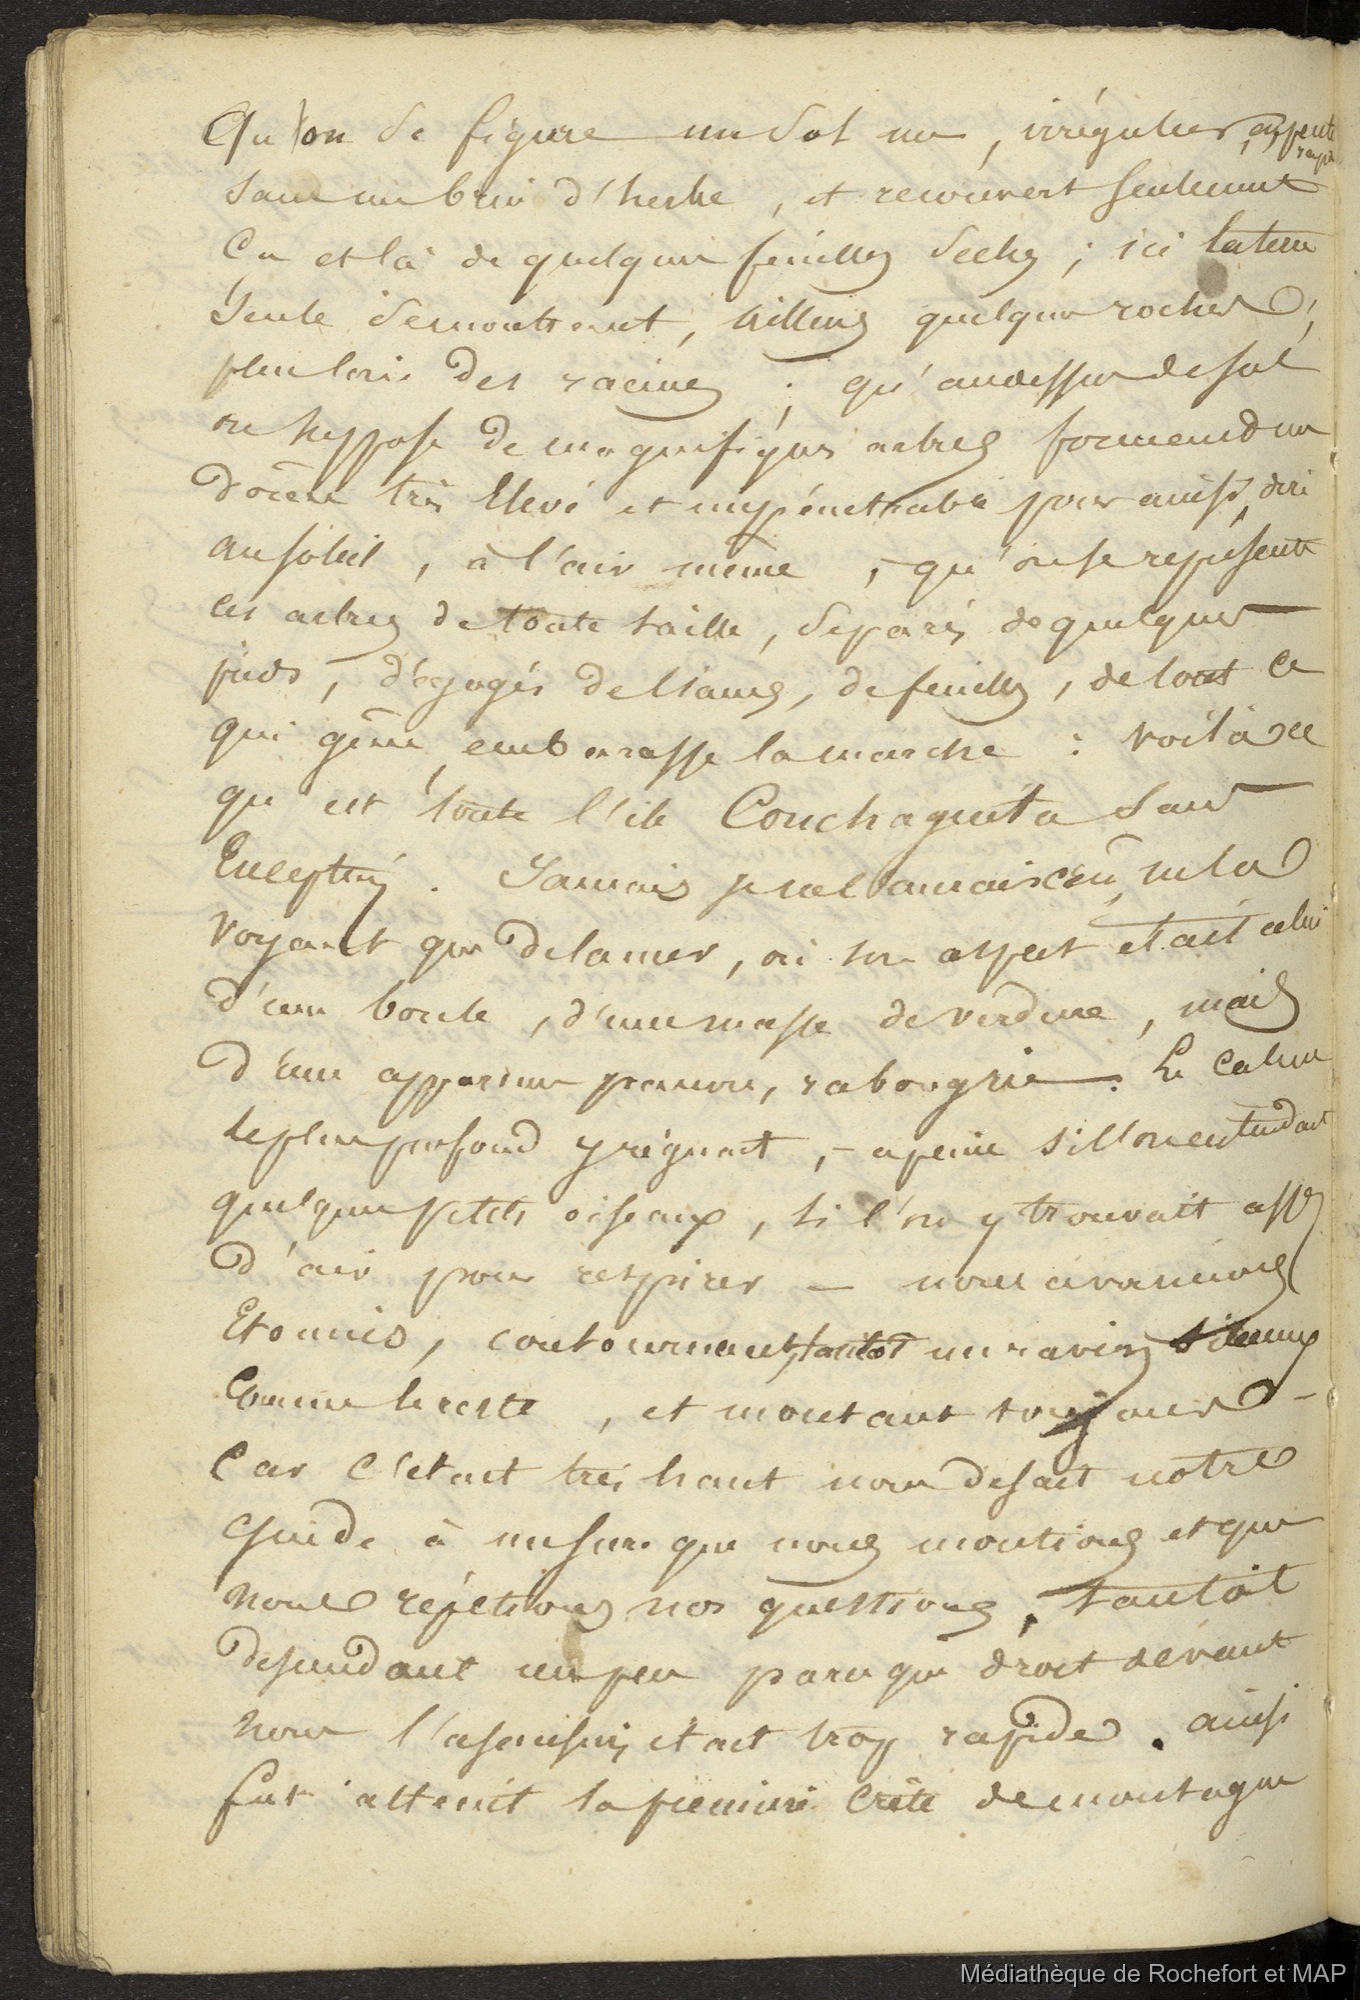 Qu'on se figure un sol nu, irrégulier, en pente
sans un brin d'herbe, et recouvert seulement
Ca et là de quelques feuilles seches ; ici la terre
Seule se montrant, ailleurs quelques rochers,
plus loin des racines ; qu'au dessus de sol
on suppose de magnifiques arbres formend un
dôme très Elevé et impénétrable pour ainsi dire
au soleil, à l'air même, - qu'on se représente
ces arbres de toute taille, séparés de quelques
pieds, dégagés de lianes, de feuilles, de tout ce
qui gêne, embarasse la marche : voilà ce
qu'est toute l'ile Couchagueta sans
Exception. Jamais je ne l'aurais cru, ne la
voyant que de la mer, où son aspect était celui
d'une boule, d'une masse de verdure, mais
d'une apparence pauvre, rabougrie. Le calme
le plus profond y régnait, - a peine si l'on entendait
quelques petits oiseaux, si l'on y trouvait assez
d'air pour respirer — nous avancions
Etonnés, contournant tantôt un ravin
Comme le reste, et montant toujours -
Car c'etait très haut nous disait notre
Guide à mesure que nous montions et que
nous répetions nos questions, tantôt
descendant un peu parce que droit devant
nous l'ascension etait trop rapide. ainsi
fut atteint la premiere crête de montagne
Médiathèque de Rochefort et MAP